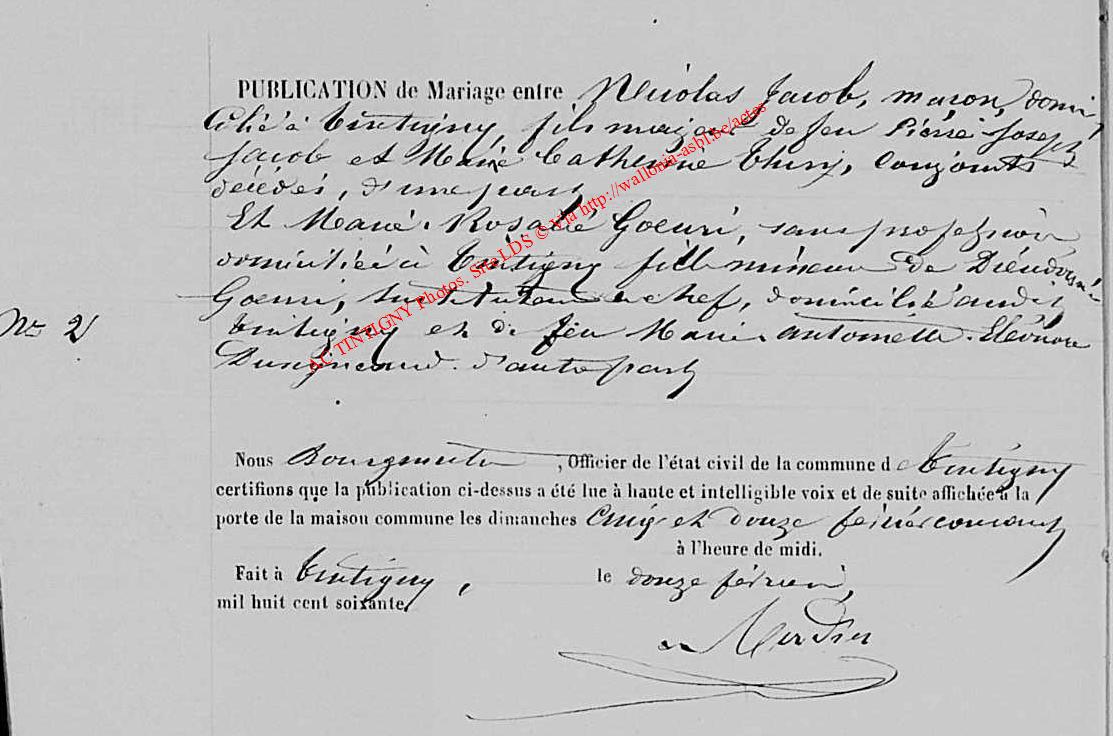 PUBLICATION de Mariage entre Nicolas Jacob, maçon, domi
cilié à Tintigny, fils majeur de feu Pierre Joseph
Jacob et Marie Catherine Thiry, conjoints
décédés, d'une part
Et Marie Rosalie Goeuri, sans profession
domiciliée à Tintigny fille mineure de Dieudonné
Goeuri, instituteur en chef, domicilié audit
N° 2
Tintigny et de feu Marie Antoinette Eléonore
d'autre part
Nous Bourgmestre, Officier de l'état civil de la commune de Tintigny
certifions que la publication ci-dessus a été lue à haute et intelligible voix et de suite affichée à la
porte de la maison commune les dimanches cinq et douze février courant
à l'heure de midi.
Fait à Tintigny, le douze février,
mil huit cent soixante
AC TINTIGNY Photos. Site LDS © via http://wallonia-asbl.be/actes